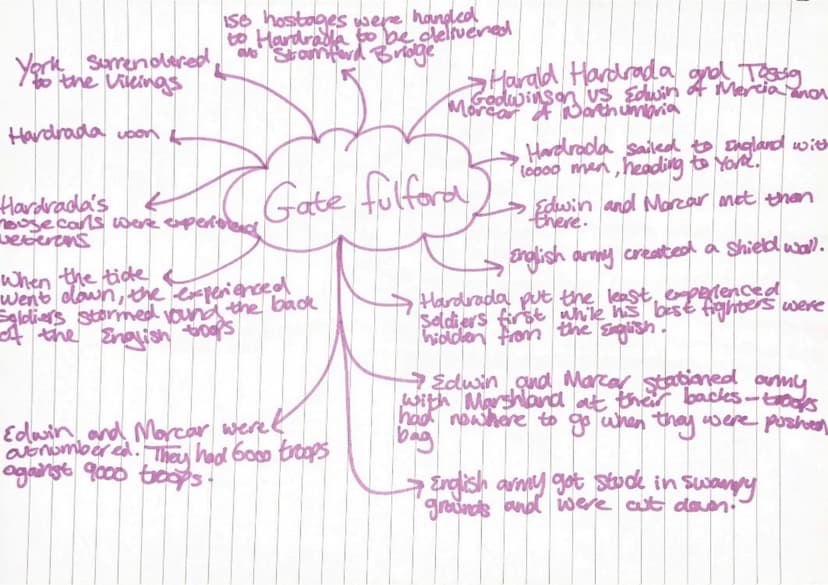 Gate fulford
150 hostages were handed
to Hardrada to be delivered
at Stamford Bridge
Harald Hardrada and Tostig
Godwinson VS Edwin of Mercia and
Morcar of Northumbria
Hardrada sailed to England with
10000 men, heading to York.
Edwin and Morcar met then
there.
English army created a Shield wall.
Hardrada put the least experienced
soldiers first while his best fighters were
hidden from the English.
Edwin and Morcar stationed army
with Marshland at their backs - troops
had nowhere to go when they were pushed
bag
English army got stuck in swampy
grounds and were cut down.
Edwin and Morcar were
outnumbered. They had 6000 troops
against 9000 troops.
When the tide
went down, the experienced
soldiers stormed round the back
of the English troops
Hardrada's
housecarls were experienced
veterans
Hardrada won
York surrendered
to the Vikings